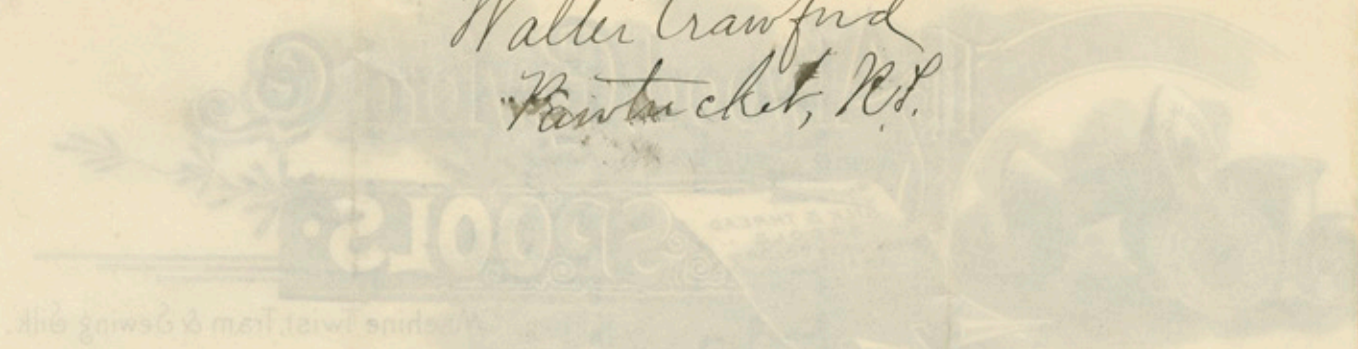 Walter Crawford
Pawtucket, R.I.
SPOOLS.
SILK & THREAD
Machine Twist, Tram & Sewing Silk.